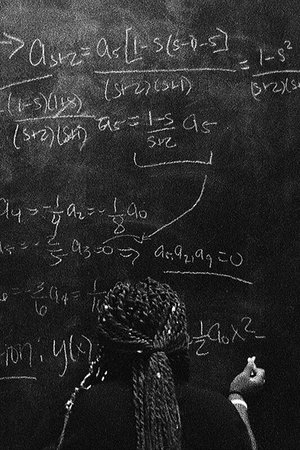 → a_{s+2} = a_s[1-s(s-1)-s] / (s+2)(s+1) = 1-s² / (s+2)(s+
(1-s)(1+s) / (s+2)(s+1) a_s = 1-s / s+2 a_s
a_4 = -1/4 a_2 = -1/8 a_0
= -2/5 a_3 = 0 ⇒ a_5, a_7, a_9 = 0
= -3/6 a_4 = 1/
ion: y(x) 1/2 a_0 x² -